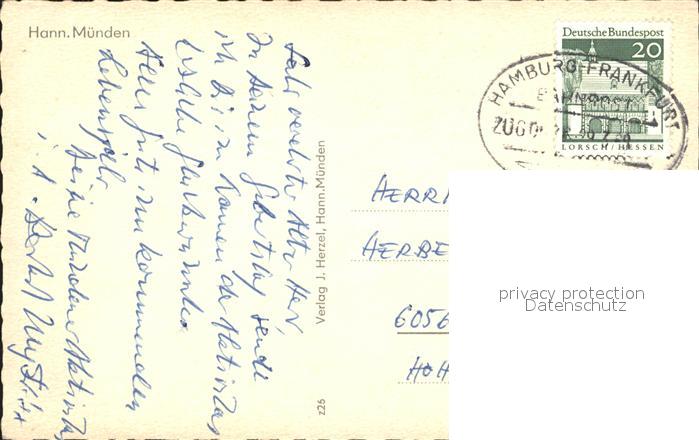 Hann. Münden
Sehr verehrter Alter Herr,
zu Deinem Geburtstag sende
ich Dir im Namen der Aktivitas
herzliche Glückwünsche
Alles Gute im kommenden
Lebensjahr
Deine Mündener Aktivitas
i. A.
Verlag J. Herzel, Hann. Münden
z26
Deutsche Bundespost
20
LORSCH/HESSEN
HAMBURG-FRANKFURT
BAHNPOST
ZUG
HERR
HERBE
6056
HOH
privacy protection
Datenschutz